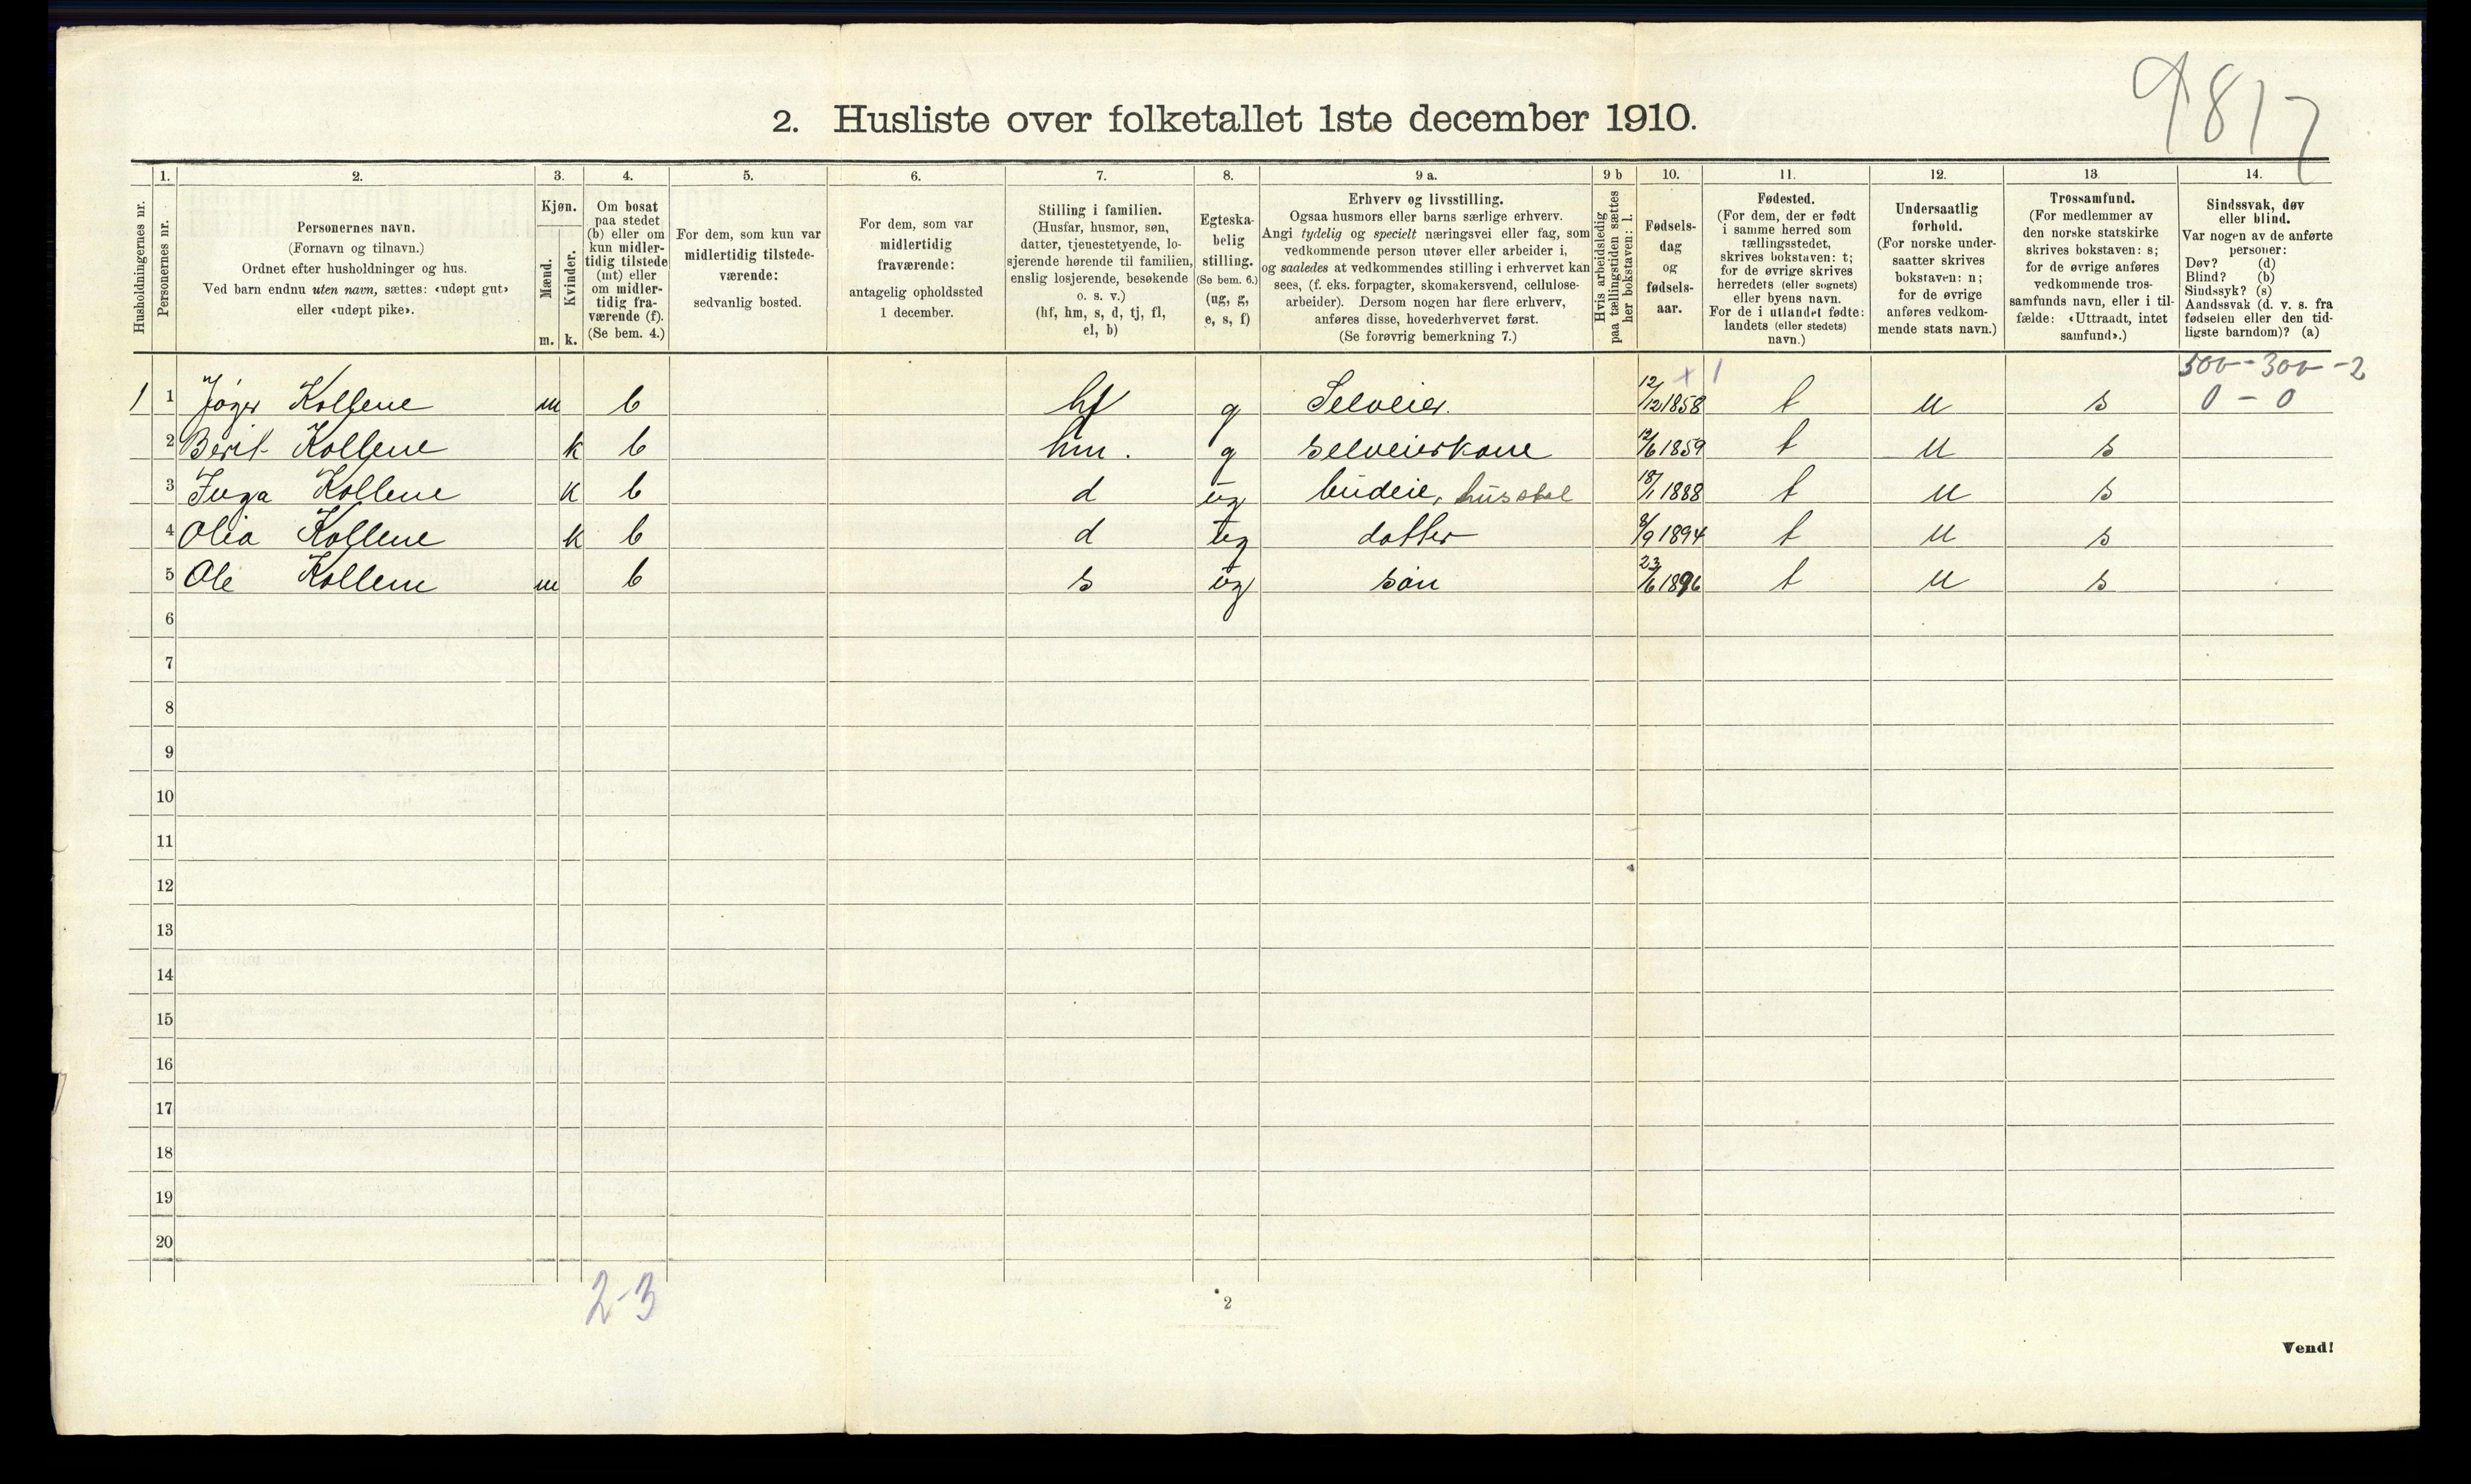 9817
2. Husliste over folketallet 1ste december 1910.
Husholdningernes nr.
1.
Personernes nr.
2.
Personernes navn.
(Fornavn og tilnavn.)
Ordnet efter husholdninger og hus.
Ved barn endnu uten navn, sættes: «udøpt gut»
eller «udøpt pike».
3.
Kjøn.
Mænd.
Kvinder.
m. k.
4.
Om bosat
paa stedet
(b) eller om
kun midler-
tidig tilstede
(mt) eller
om midler-
tidig fra-
værende (f).
(Se bem. 4.)
5.
For dem, som kun var
midlertidig tilstede-
værende:
sedvanlig bosted.
6.
For dem, som var
midlertidig
fraværende:
antagelig opholdssted
1 december.
7.
Stilling i familien.
(Husfar, husmor, søn,
datter, tjenestetyende, lo-
sjerende hørende til familien,
enslig losjerende, besøkende
o. s. v.)
(hf, hm, s, d, tj, fl,
el, b)
8.
Egteska-
belig
stilling.
(Se bem. 6.)
(ug, g,
e, s, f)
9 a.
Erhverv og livsstilling.
Ogsaa husmors eller barns særlige erhverv.
Angi tydelig og specielt næringsvei eller fag, som
vedkommende person utøver eller arbeider i,
og saaledes at vedkommendes stilling i erhvervet kan
sees, (f. eks. forpagter, skomakersvend, cellulose-
arbeider). Dersom nogen har flere erhverv,
anføres disse, hovederhvervet først.
(Se forøvrig bemerkning 7.)
9 b
Hvis arbeidsledig
paa tællingstiden sættes
her bokstaven: l.
10.
Fødsels-
dag
og
fødsels-
aar.
11.
Fødested.
(For dem, der er født
i samme herred som
tællingsstedet,
skrives bokstaven: t;
for de øvrige skrives
herredets (eller sognets)
eller byens navn.
For de i utlandet fødte:
landets (eller stedets)
navn.)
12.
Undersaatlig
forhold.
(For norske under-
saatter skrives
bokstaven: n;
for de øvrige
anføres vedkom-
mende stats navn.)
13.
Trossamfund.
(For medlemmer av
den norske statskirke
skrives bokstaven: s;
for de øvrige anføres
vedkommende tros-
samfunds navn, eller i til-
fælde: «Uttraadt, intet
samfund».)
14.
Sindssvak, døv
eller blind.
Var nogen av de anførte
personer:
Døv? (d)
Blind? (b)
Sindssyk? (s)
Aandssvak (d. v. s. fra
fødselen eller den tid-
ligste barndom)? (a)
x 1 500 - 300 - 2
1 1 Kollene m b hf g Selveier. 12/12 1858 t n s 0 - 0
2 Berit Kollene k b hm. g selveierkone 12/6 1859 t n s
3 Inga Kollene k b d ug budeie, husstel 18/1 1888 t n s
4 Olia Kollene k b d ug datter 8/9 1894 t n s
5 Ole Kollene m b s ug søn 23/6 1896 t n s
6
7
8
9
10
11
12
13
14
15
16
17
18
19
20
2-3
2
Vend!